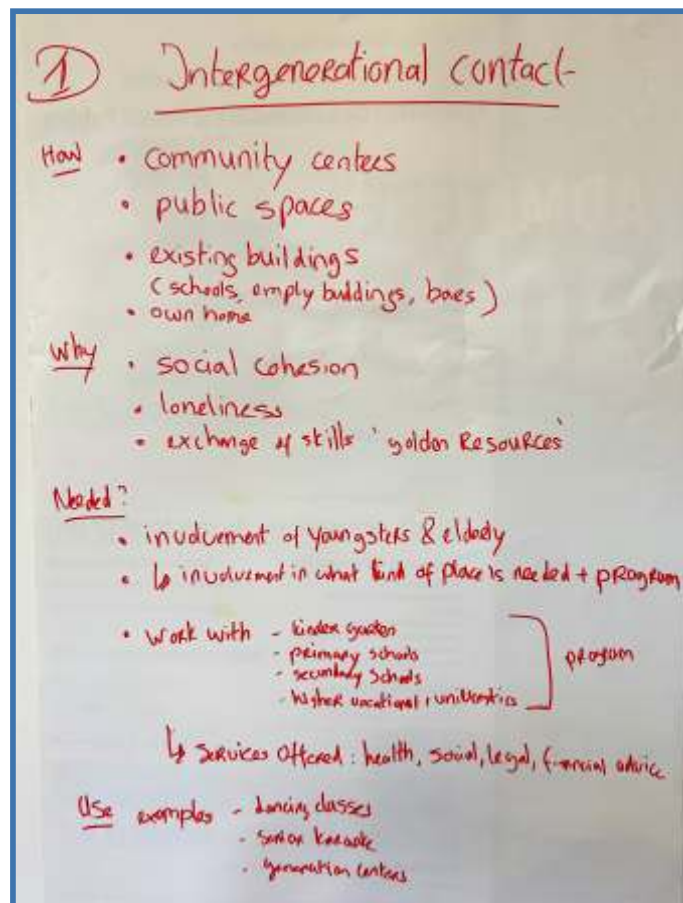 1 Intergenerational contact
How • community centers
• public spaces
• existing buildings
(schools, empty buildings, bars)
• own home
Why • social cohesion
• loneliness
• exchange of skills 'golden Resources'
Needed?
• involvement of youngsters & elderly
• ↳ involvement in what kind of place is needed + program
• Work with - kinder garten
- primary schools
- secundary schools
- higher vocational, universities
program
↳ Services offered: health, social, legal, financial advice
Use examples - dancing classes
- senior karaoke
- generation centers